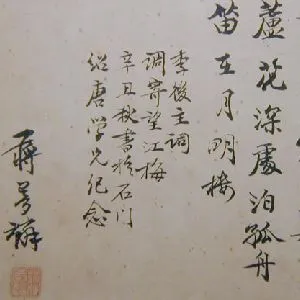 蘆花深處泊孤舟
笛在月明樓
李後主詞
調寄望江梅
辛丑秋書於石门
紹唐学兄紀念
蔣夢麟